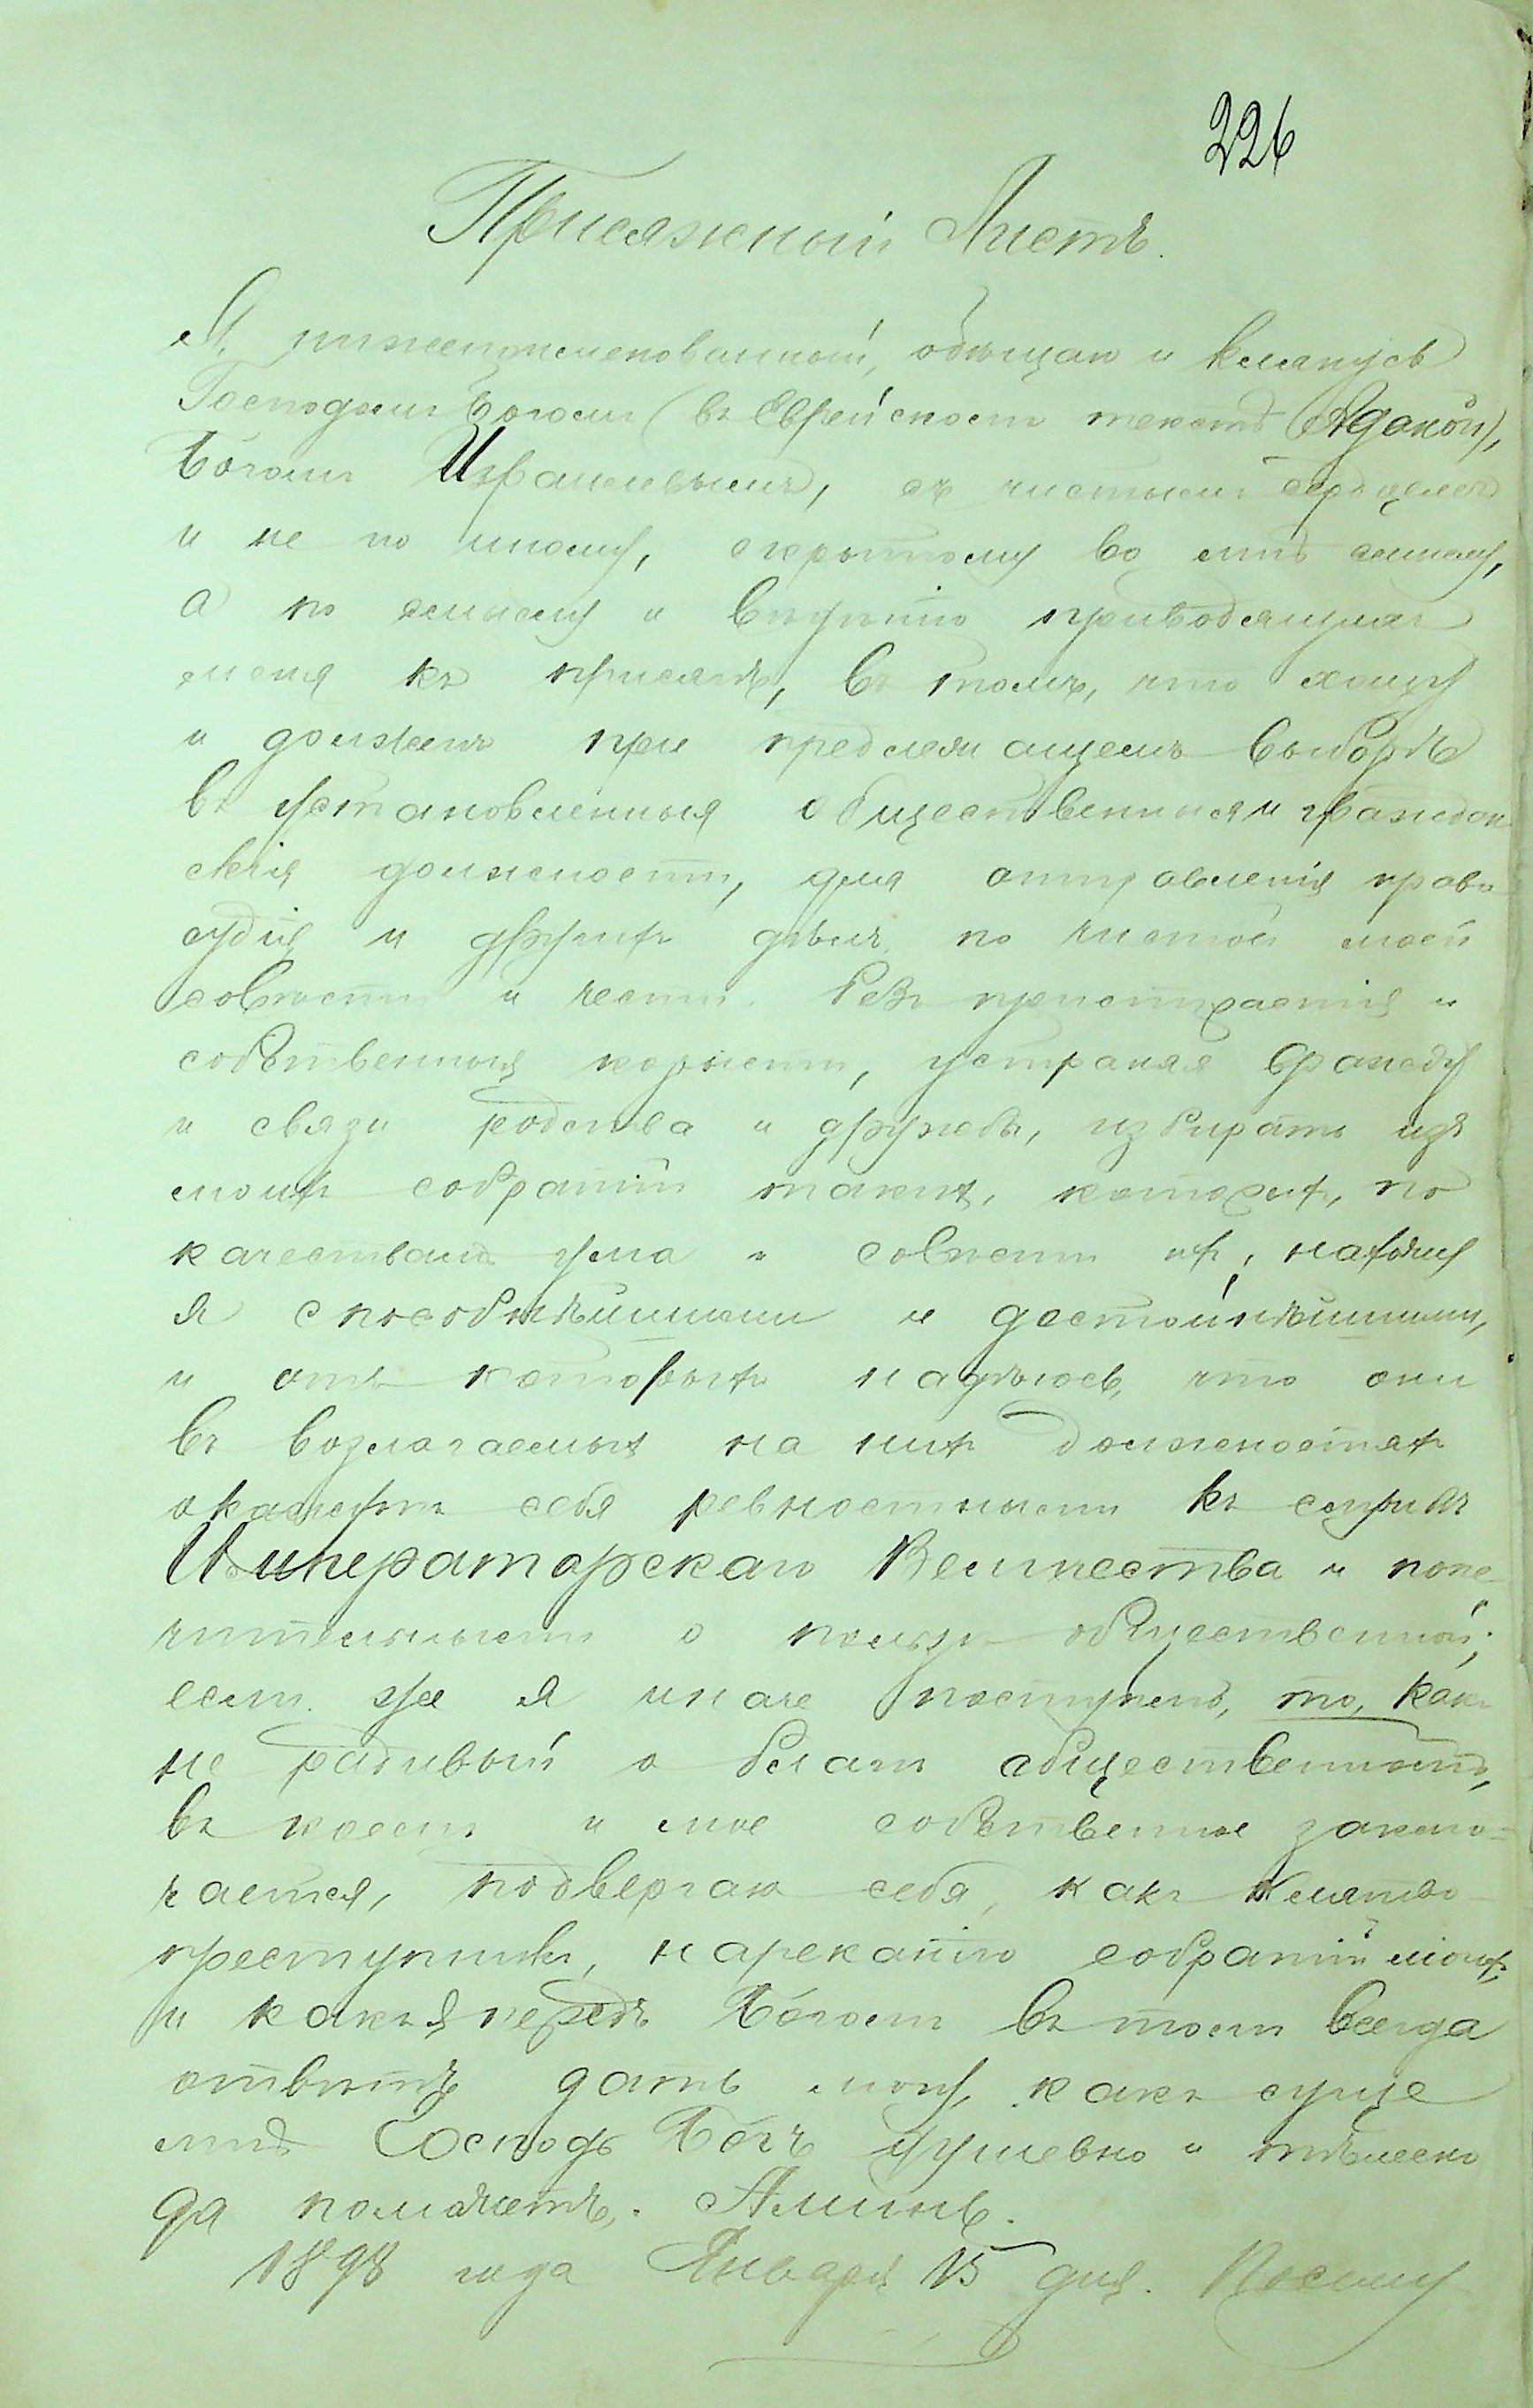 226
Присяжный Листъ.
Я, нижепоименованный, обѣщаю и клянусь
Господомъ Богомъ (въ Еврейскомъ текстѣ (Адоной),
Богомъ Израилевымъ, съ чистымъ сердцемъ
и не по иному, скрытому во мнѣ смыслу,
а по смыслу и вѣдѣнію приводящихъ
меня къ присягѣ, въ томъ, что хощу
и долженъ при предлежащемъ выборѣ
въ установленныя общественныя и граждан-
скія должности, для отправленія право-
судія и другихъ дѣлъ по чистой моей
совѣсти и чести. безъ пристрастія и
собственныя корысти, устраняя вражду
и связи родства и дружбы, избирать изъ
моихъ собратій такихъ, которыхъ, по
качествамъ ума и совѣсти ихъ, нахожу
я способнѣйшими и достойнѣйшими,
и отъ которыхъ надѣюсь, что они
въ возлагаемыхъ на нихъ должностяхъ
окажутъ себя ревностными къ службѣ
Императорскаго Величества и попе-
чительными о пользѣ общественной;
если же я иначе поступлю, то, какъ
не радивый о благѣ общественномъ,
въ коемъ и мое собственное заклю-
чается, подвергаю себя, какъ клятво-
преступникъ, нареканію собратій моихъ,
и какъ я передъ Богомъ въ томъ всегда
отвѣтъ дать могу, какъ суще
мнѣ Господь Богъ душевно и тѣлесно
да поможетъ. Аминь.
1898 года Января 15 дня. Посему